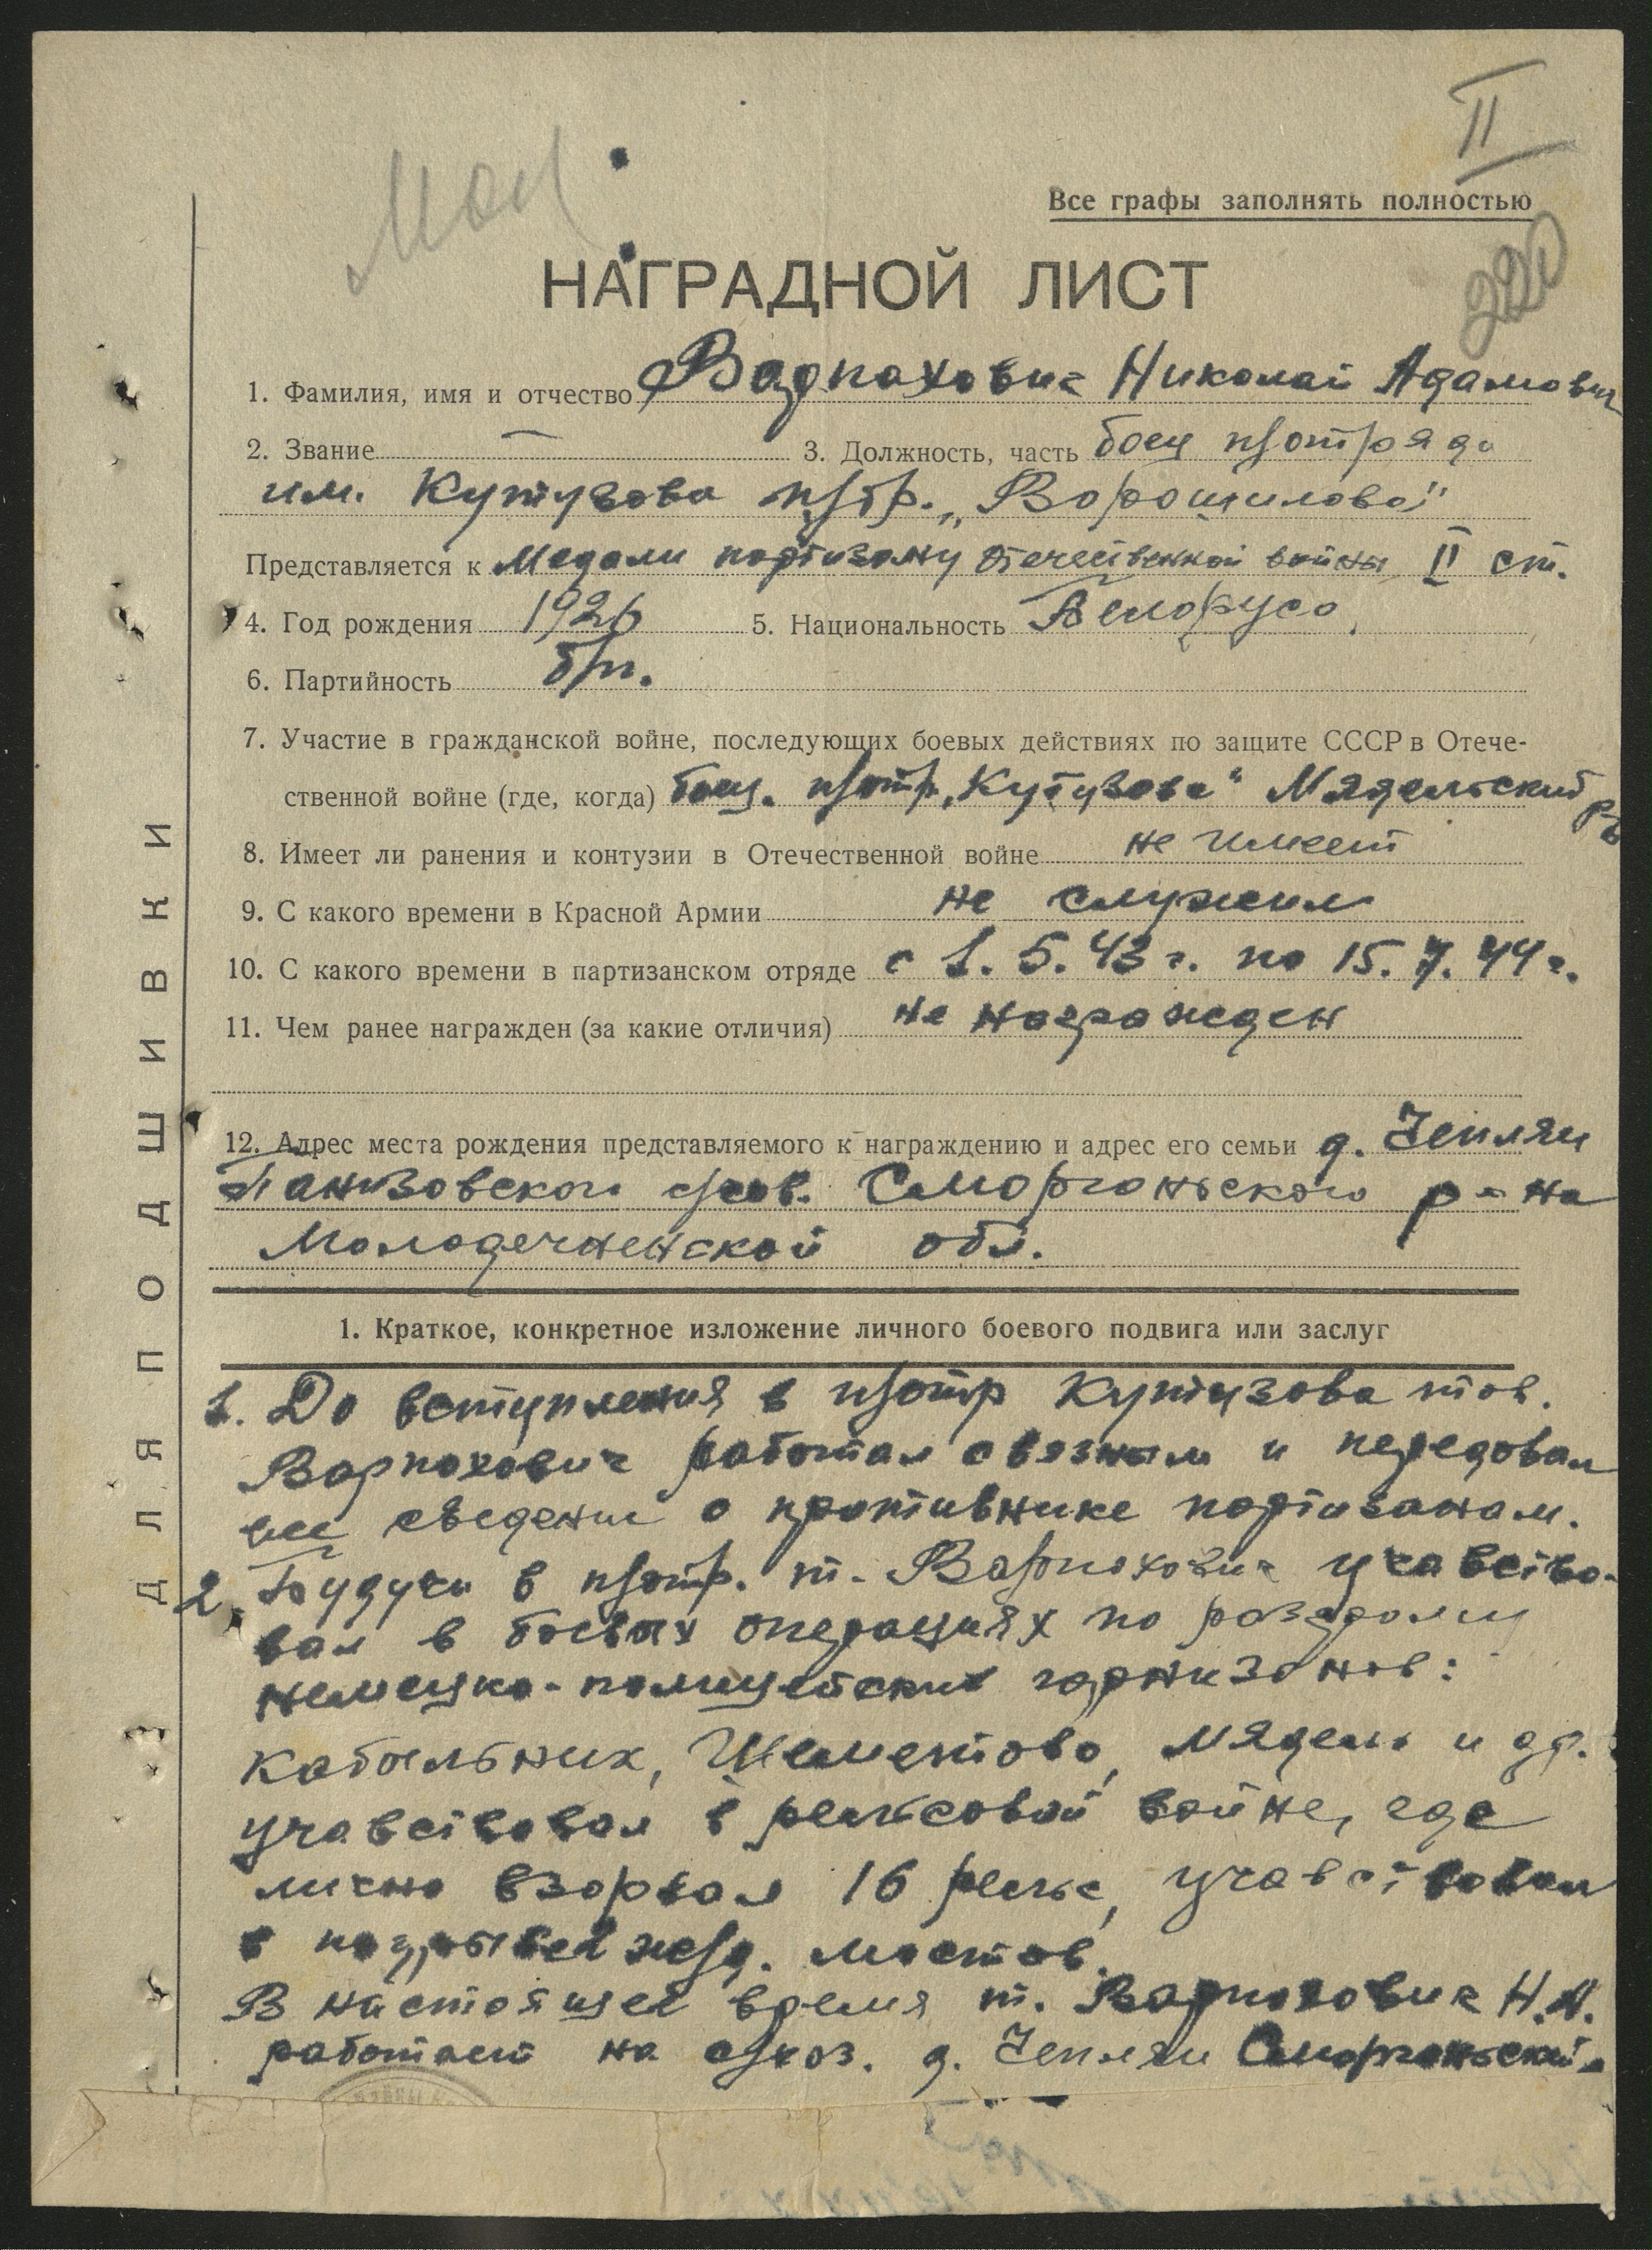 II
Мол
Все графы заполнять полностью
220
НАГРАДНОЙ ЛИСТ
1. Фамилия, имя и отчество Варпахович Николай Адамович
2. Звание — 3. Должность, часть боец п/отряда
им. Кутузова п/бр. „Ворошилова"
Представляется к Медали партизану отечественной войны II ст.
4. Год рождения 1926 5. Национальность Белорус
6. Партийность б/п.
7. Участие в гражданской войне, последующих боевых действиях по защите СССР в Отече-
ственной войне (где, когда) боец. п/отр. „Кутузова" Мядельский р-н
8. Имеет ли ранения и контузии в Отечественной войне не имеет
9. С какого времени в Красной Армии не служил
10. С какого времени в партизанском отряде с 1. 5. 43 г. по 15. 7. 44 г.
11. Чем ранее награжден (за какие отличия) не награжден
12. Адрес места рождения представляемого к награждению и адрес его семьи д.
с/сов. Сморгоньского р-на
Молодечненской обл.
1. Краткое, конкретное изложение личного боевого подвига или заслуг
1. До вступления в п/отр Кутузова тов.
Варпахович работал связным и передовал
все сведения о противнике партизанам.
2. Будучи в п/отр. т. Варпахович учавство-
вал в боевых операциях по разгрому
немецко-полицейских гарнизонов:
Кобыльник, Шеметово, Мядель и др.
учавствовал в рельсовой войне, где
лично взорвал 16 рельс, учавствовал
в подрывей ж/д. мостов.
В настоящее время т. Варпахович Н.А.
работает на с/хоз. д. Сморгоньский
ДЛЯ ПОДШИВКИ